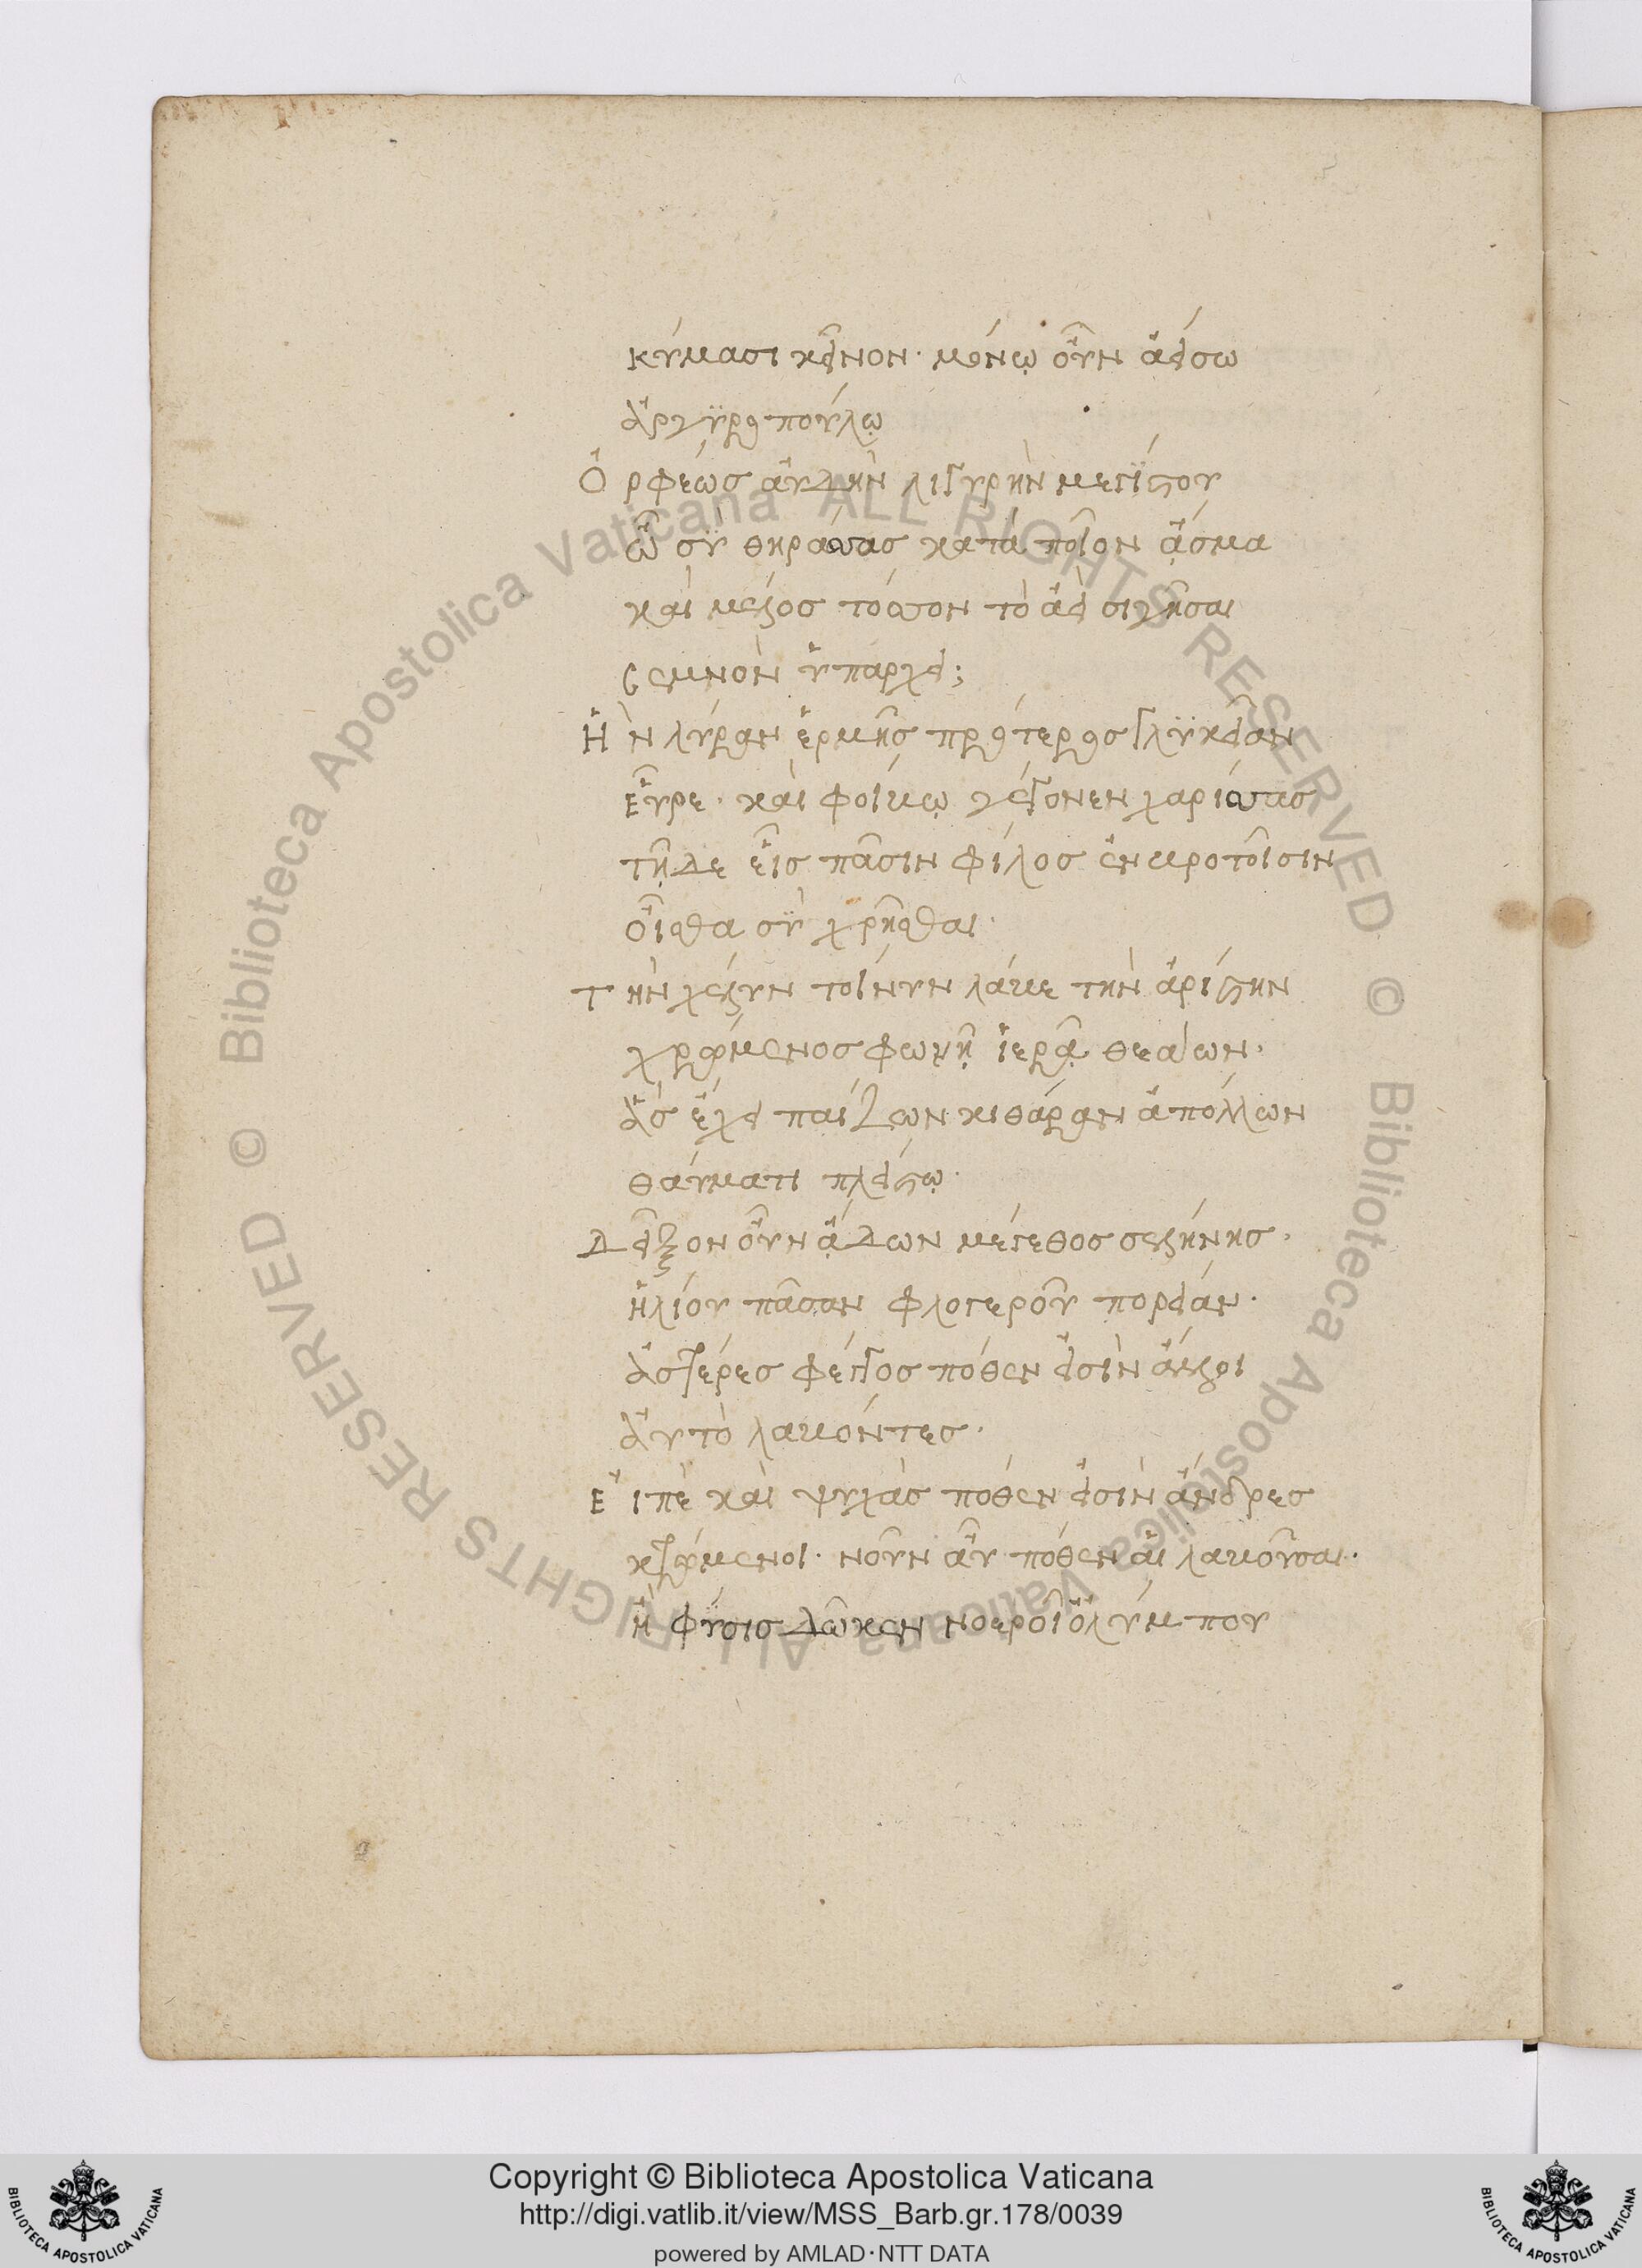 κύμασι κεῖνον· μόνῳ οὖν ἀείσω
ἀργϋροπούλῳ
Ὀρφεὼς ἀυδὴν λιγυρὴν μεγίστου
ὦ σϋ θηράσας κατὰ ποῖον ᾆσμα
καὶ μέλος τόσσον τὸ ἀεὶ σιγῆσαι
σεμνὸν ὑπάρχει;
Ἣν λύραν ἑρμῆς πρότερος γλϋκεῖαν
εὗρε· καὶ φοίβῳ γέγονεν χαρίσας
τῇδε εἷς πᾶσιν φίλος ἐν βροτοῖσιν
οἶσθα σϋ χρῆσθαι·
Τὴν χέλυν τοίνυν λάβε τὴν ἀρίστην
χρώμενος φωνῇ ἱερᾷ θεάων·
ἃς ἔχει παίζων κιθάραν ἀπόλλων
θαύματι πλείστῳ·
Δεῖξον οὖν ᾄδων μέγεθος σελήνης·
ἡλίου πᾶσαν φλογεροῦ πορείαν·
ἀστέρες φέγγος πόθεν εἰσὶν ἄυλοι
ἀυτὸ λαβόντες·
Εἰπὲ καὶ ψυχὰς πόθεν εἰσὶν ἄνδρες
κτώμενοι· νοῦν ἂυ πόθεν ἁι λαβοῦσαι·
ἢ φϋσις δῶκεν νοεροῖ ὀλύμπου
Copyright © Biblioteca Apostolica Vaticana
http://digi.vatlib.it/view/MSS_Barb.gr.178/0039
powered by AMLAD·NTT DATA
BIBLIOTECA APOSTOLICA VATICANA
BIBLIOTECA APOSTOLICA VATICANA
© Biblioteca Apostolica Vaticana ALL RIGHTS RESERVED
© Biblioteca Apostolica Vaticana ALL RIGHTS RESERVED